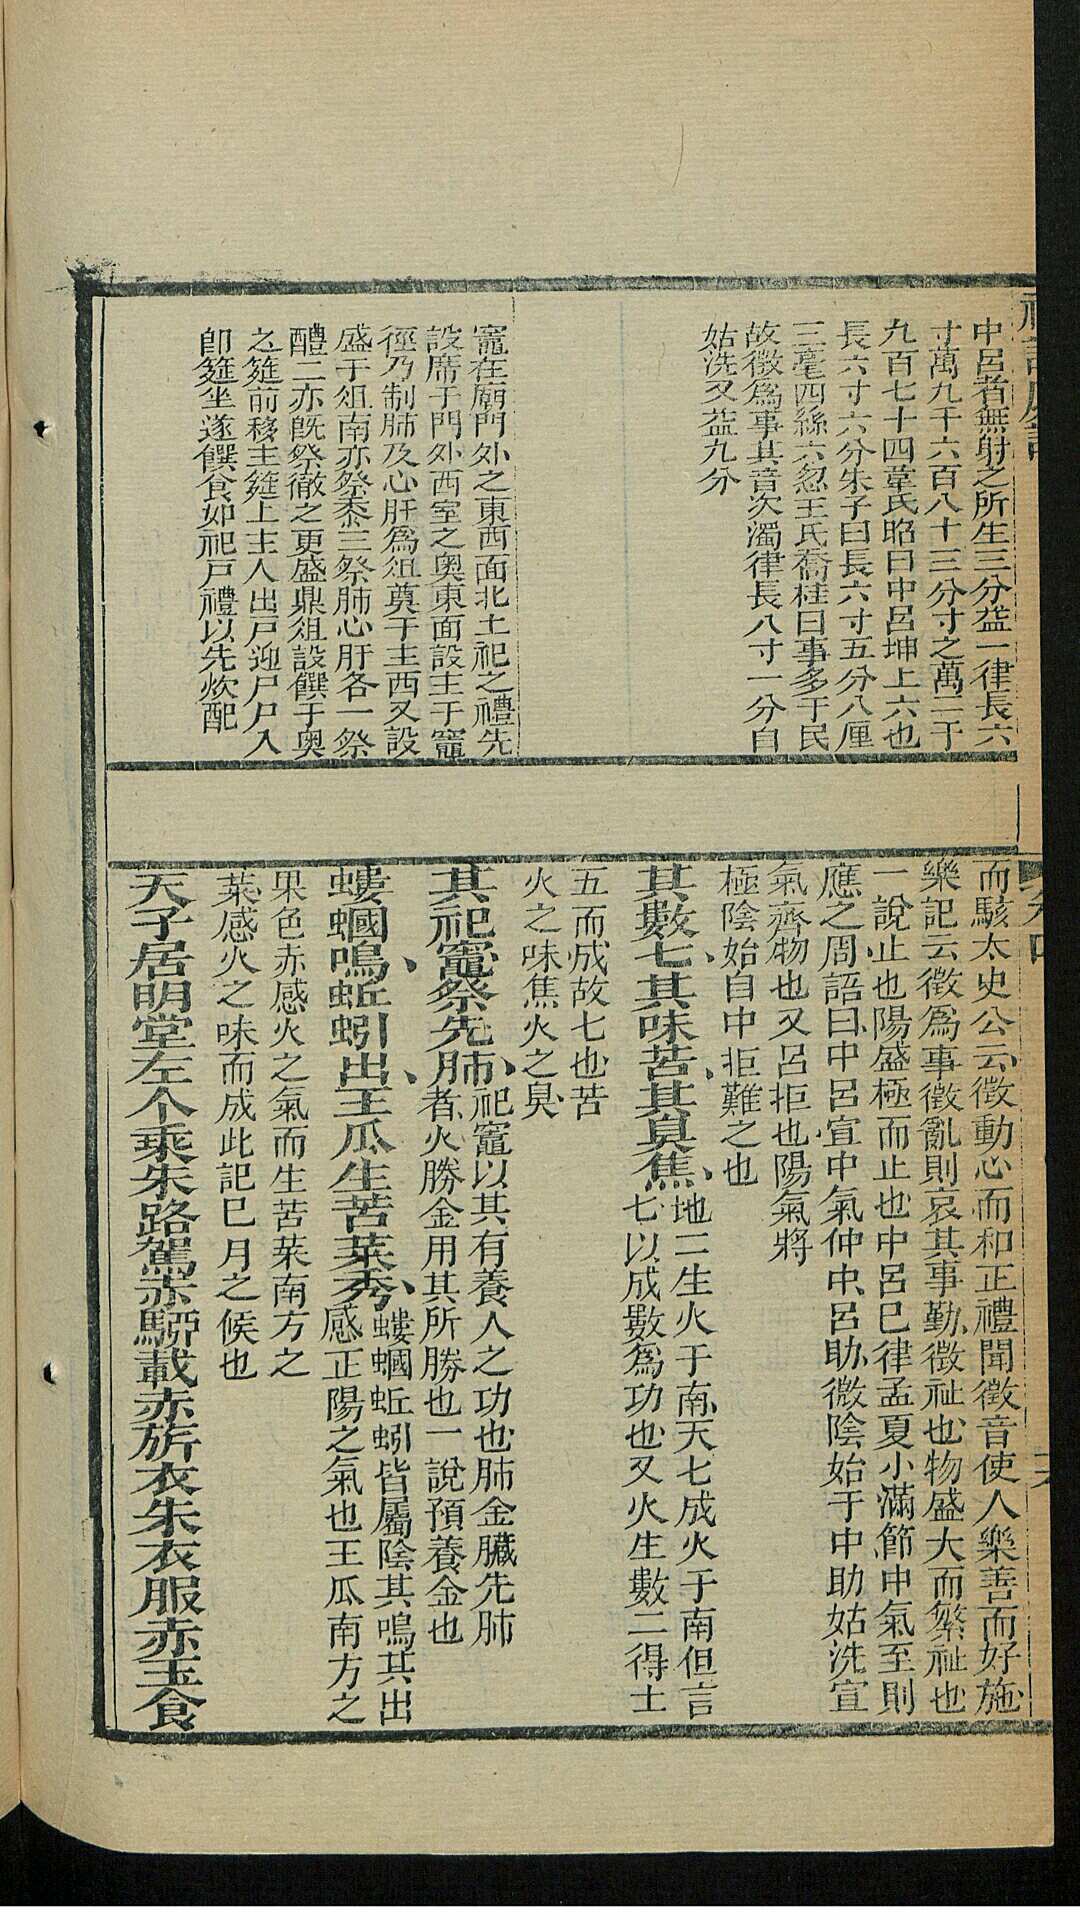 中呂者無射之所生三分益一律長六
寸萬九千六百八十三分寸之萬二千
九百七十四韋氏昭曰中呂坤上六也
長六寸六分朱子曰長六寸五分八厘
三毫四絲六忽王氏喬桂曰事多于民
故徵爲事其音次濁律長八寸一分自
姑洗又益九分
竈在廟門外之東西面北上祀之禮先
設席于門外西室之奧東面設主于竈
徑乃制肺及心肝爲俎奠于主西又設
盛于俎南亦祭黍三祭肺心肝各一祭
醴二亦旣祭徹之更盛鼎俎設饌于奧
之筵前移主筵上主人出戸迎尸尸入
卽筵坐遂饌食如祀戸禮以先炊配
而駭太史公云徵動心而和正禮聞徵音使人樂善而好施
樂記云徵爲事徵亂則哀其事勤徵祉也物盛大而繁祉也
一說止也陽盛極而止也中呂巳律孟夏小滿節中氣至則
應之周語曰中呂宣中氣仲中呂助微陰始于中助姑洗宣
氣齊物也又呂拒也陽氣將
極陰始自中拒難之也
其數七其味苦其臭焦
地二生火于南天七成火于南但言
七以成數爲功也又火生數二得土
五而成故七也苦
火之味焦火之臭
其祀竈祭先肺
祀竈以其有養人之功也肺金臟先肺
者火勝金用其所勝也一說預養金也
螻蟈鳴蚯蚓出王瓜生苦菜秀
螻蟈蚯蚓皆屬陰其鳴其出
感正陽之氣也王瓜南方之
果色赤感火之氣而生苦菜南方之
菜感火之味而成此記巳月之候也
天子居明堂左个乘朱路駕赤騢載赤旂衣朱衣服赤玉食